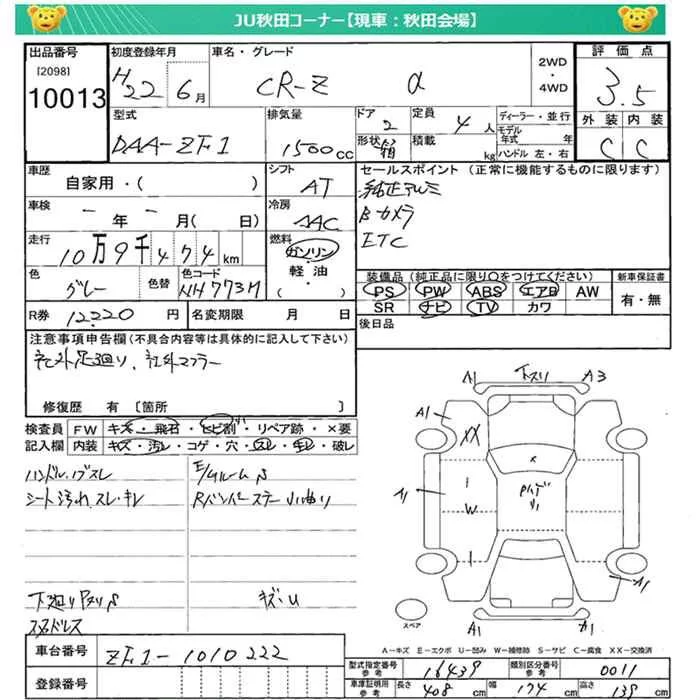 JU秋田コーナー【現車：秋田会場】
出品番号 初度登録年月 車名・グレード 2WD・4WD 評価点
[2098]
10013 H22 6月 CR-Z α 3.5
型式 排気量 ドア 定員 ディーラー・並行 外装 内装
DAA-ZF1 1500cc 2 4人 モデル年式 年 C C
形状 箱 積載 kg ハンドル 左・右
車歴 シフト セールスポイント (正常に機能するものに限ります)
自家用・( ) AT 純正アルミ
車検 冷房 Bカメラ
- 年 - 月( 日) AAC ETC
走行 燃料
10万9千474km ガソリン・軽油・( )
色 色替 色コード 装備品 (純正品に限り○をつけてください) 新車保証書
グレー NH773M PS PW ABS エアB AW 有・無
SR ナビ TV カワ
R券 12220円 名変期限 月 日 後日品
注意事項申告欄(不具合内容等は具体的に記入して下さい)
社外足廻り、社外マフラー
修復歴 有〔箇所 〕
検査員 FW キズ・飛石・ヒビ割・リペア跡・×要
記入欄 内装 キズ・汚レ・コゲ・穴・スレ・キレ・破レ
ハンドル、ノブスレ
シート汚れ、スレ・キレ
下廻り
キズ・U
下スリ
A1 A3
A1 XX
×
W
A1
A1 A1
スペア
A－キズ E－エクボ U－凹み W－補修跡 S－サビ C－腐食 XX－交換済
車台番号 ZF1-1010222
登録番号
型式指定番号 参考 16439 類別区分番号 参考 0011
車庫証明用 参考 長さ 408cm 幅 174cm 高さ 139cm